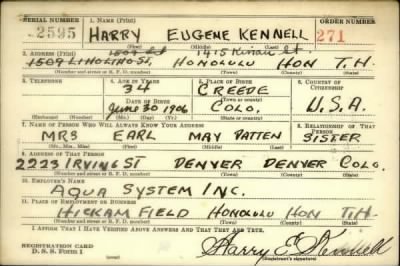 SERIAL NUMBER 1. NAME (Print) ORDER NUMBER
2595 HARRY EUGENE KENNELL 271
(First) (Middle) (Last)
1415 Kinau St.
2. ADDRESS (Print)
1509 LIHOLIHO ST, HONOLULU HON T.H.
(Number and street or R. F. D. number) (Town) (County) (State)
3. TELEPHONE 4. AGE IN YEARS 5. PLACE OF BIRTH 6. COUNTRY OF CITIZENSHIP
34 CREEDE
DATE OF BIRTH (Town or county)
JUNE 30 1906 COLO. U.S.A.
(Exchange) (Number) (Mo.) (Day) (Yr.) (State or country)
7. NAME OF PERSON WHO WILL ALWAYS KNOW YOUR ADDRESS 8. RELATIONSHIP OF THAT PERSON
MRS EARL MAY PATTEN SISTER
(Mr., Mrs., Miss) (First) (Middle) (Last)
9. ADDRESS OF THAT PERSON
2223 IRVING ST DENVER DENVER COLO.
(Number and street or R. F. D. number) (Town) (County) (State)
10. EMPLOYER'S NAME
AQUA SYSTEM INC.
11. PLACE OF EMPLOYMENT OR BUSINESS
HICKAM FIELD HONOLULU HON T.H.
(Number and street or R. F. D. number) (Town) (County) (State)
I AFFIRM THAT I HAVE VERIFIED ABOVE ANSWERS AND THAT THEY ARE TRUE.
REGISTRATION CARD
D. S. S. Form 1 Harry E. Kennell
(Registrant's signature)